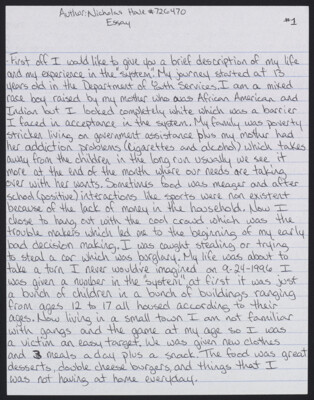 Author: Nicholas Howe # 726470
Essay
#1
First off I would like to give you a brief description of my life
and my experience in the "system". My journey started at 13
years old in the Department of Youth Services. I am a mixed
race boy raised by my mother who was African American and
Indian but I looked completely white which was a barrier
I faced in acceptance in the system. My family was poverty
stricken living on government assistance plus my mother had
her addiction problems (cigarettes and alcohol) which takes
away from the children in the long run usually we see it
more at the end of the month where our needs are taking
over with her wants. Sometimes food was meager and after
school (positive) interactions like sports were non existent
because of the lack of money in the household. Now I
chose to hang out with the cool crowd which was the
trouble makers which led me to the beginning of my early
bad decision making. I was caught stealing or trying
to steal a car which was burglary. My life was about to
take a turn I never wouldve imagined on 9-24-1996 I
was given a number in the system, at first it was just
a bunch of children in a bunch of buildings ranging
from ages 12 to 17 all housed according to their
ages. Now living in a small town I am not familiar
with gangs and the game at my age so I was
a victim an easy target. We was given new clothes
and 3 meals a day plus a snack. The food was great
desserts, double cheese burgers, and things that I
was not having at home everyday.